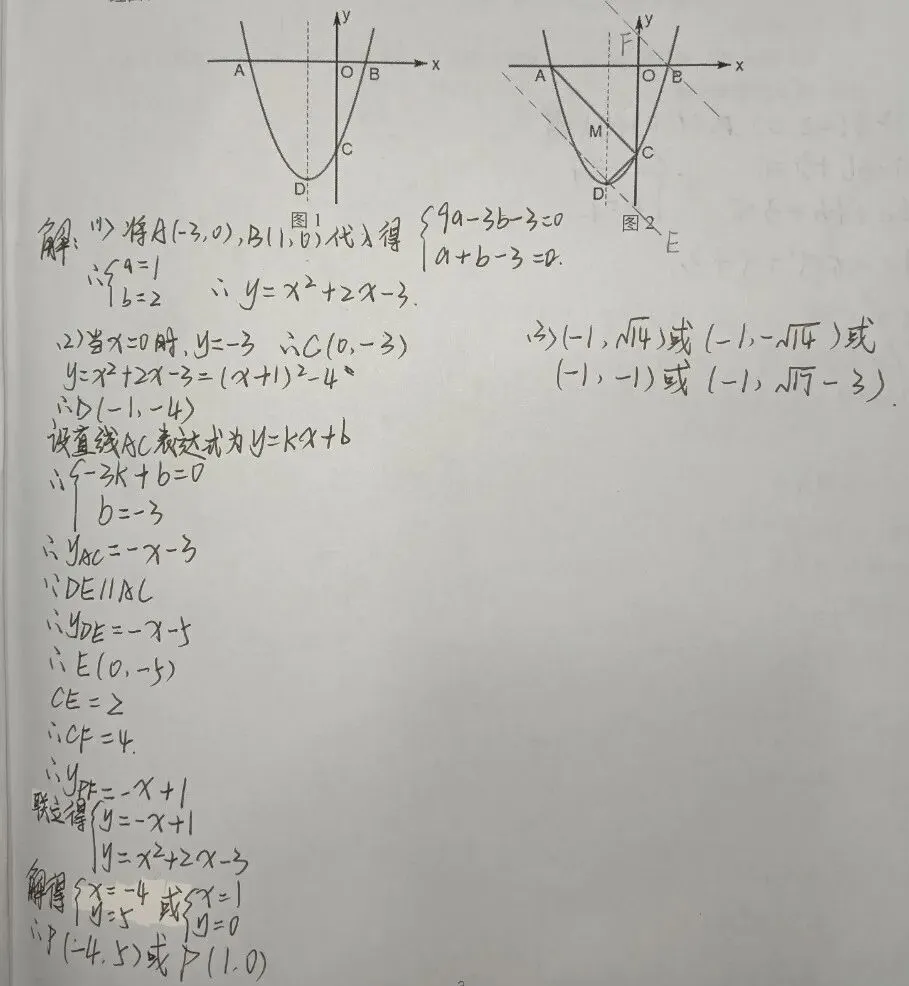 y
x
A
O
B
C
D
图1
y
F
x
A
O
B
M
C
D
E
图2
解: (1) 将A(-3,0),B(1,0)代入得 {9a-3b-3=0
a+b-3=0.
∴{a=1
b=2 ∴ y=x²+2x-3.
(2)当x=0时,y=-3 ∴C(0,-3)
y=x²+2x-3=(x+1)²-4
∴D(-1,-4)
设直线AC表达式为y=kx+b
∴{-3k+b=0
b=-3
∴y_AC=-x-3
∵DE∥AC
∴y_DE=-x-5
∴E(0,-5)
CE=2
∴CF=4.
∴y_PF=-x+1
联立得{y=-x+1
y=x²+2x-3
解得{x=-4 或{x=1
y=5 y=0
∴P(-4,5)或P(1,0)
(3)(-1,√14)或(-1,-√14)或
(-1,-1)或(-1,√17-3).